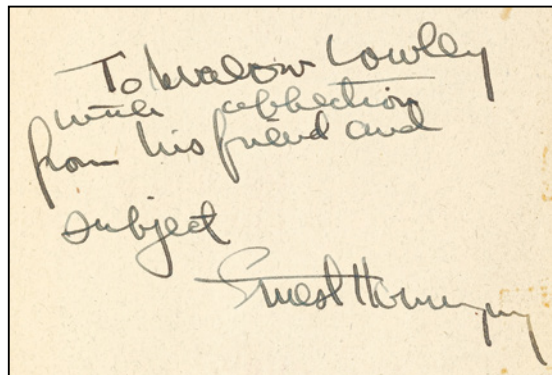 To Malcolm Cowley
with affection
from his friend and
subject
Ernest Hemingway